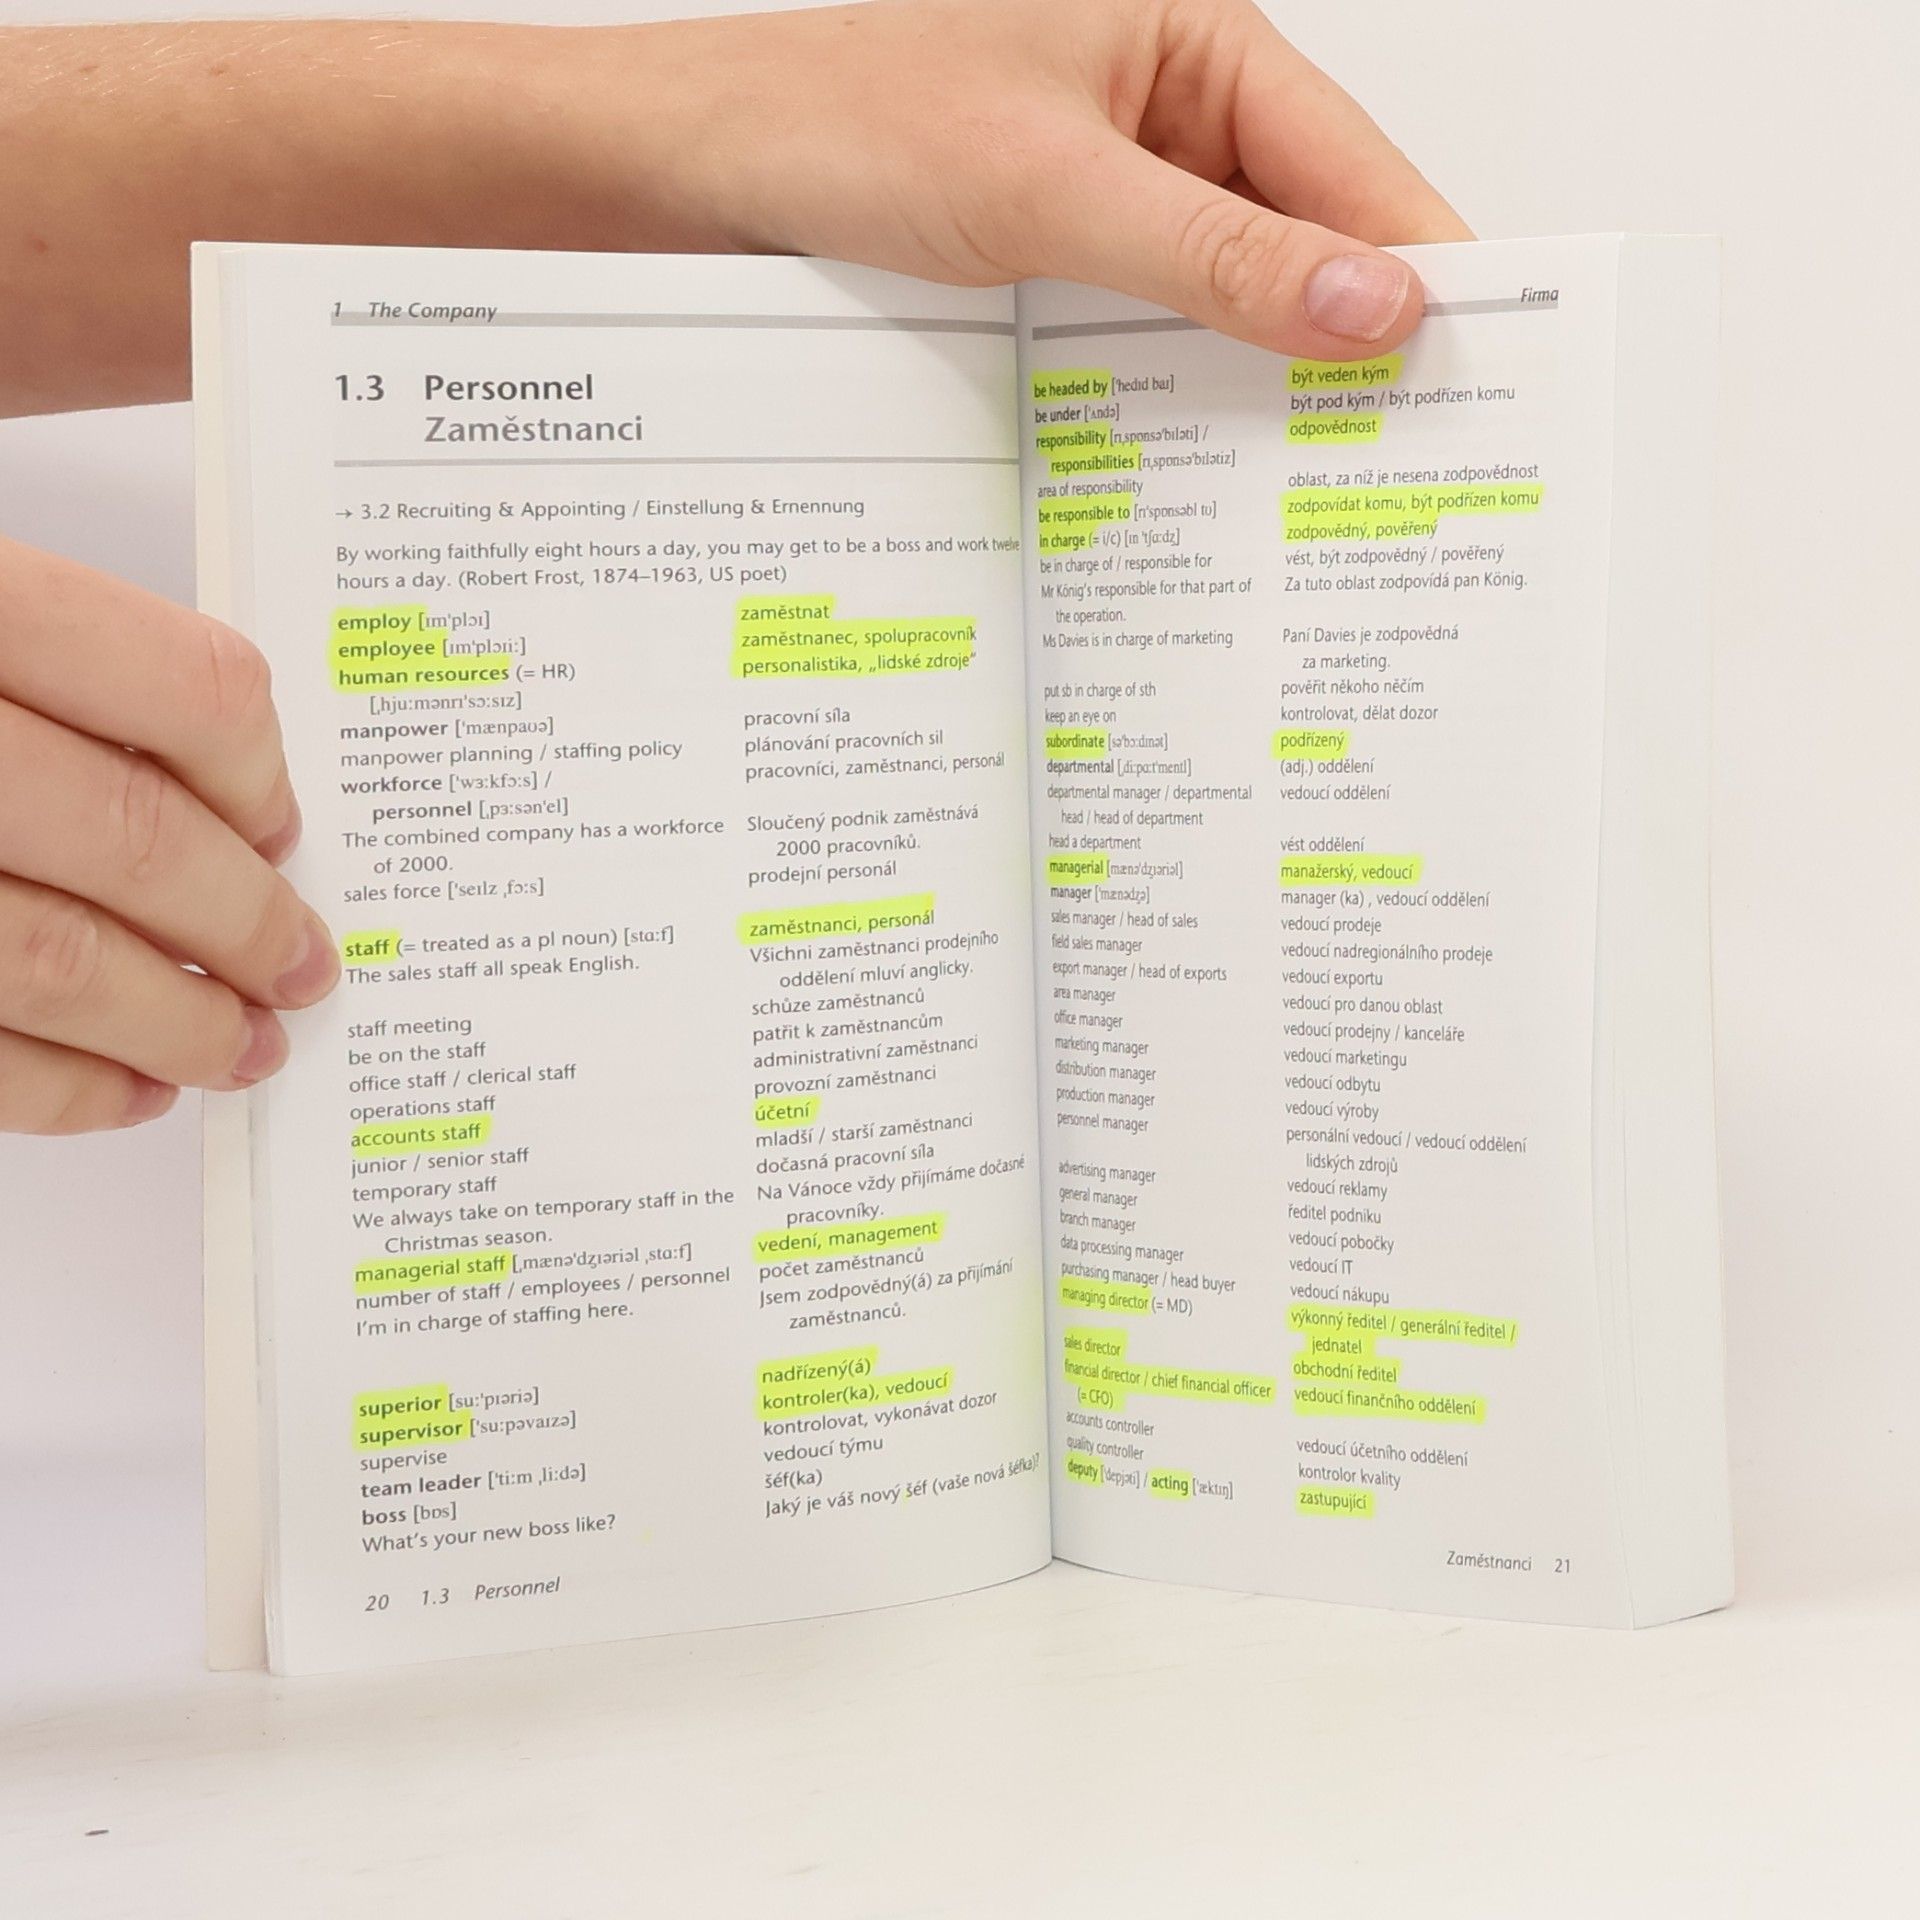 1 The Company
1.3 Personnel
Zaměstnanci
→ 3.2 Recruiting & Appointing / Einstellung & Ernennung
By working faithfully eight hours a day, you may get to be a boss and work twelve
hours a day. (Robert Frost, 1874–1963, US poet)
employ [ɪm'plɔɪ]
employee [ɪm'plɔɪi:]
human resources (= HR)
[ˌhju:mənrɪ'sɔ:sɪz]
manpower ['mænpaʊə]
manpower planning / staffing policy
workforce ['wɜ:kfɔ:s] /
personnel [ˌpɜ:sən'el]
The combined company has a workforce
of 2000.
sales force ['seɪlz ˌfɔ:s]
staff (= treated as a pl noun) [stɑ:f]
The sales staff all speak English.
staff meeting
be on the staff
office staff / clerical staff
operations staff
accounts staff
junior / senior staff
temporary staff
We always take on temporary staff in the
Christmas season.
managerial staff [ˌmænə'dʒɪəriəl ˌstɑ:f]
number of staff / employees / personnel
I'm in charge of staffing here.
superior [su:'pɪəriə]
supervisor ['su:pəvaɪzə]
supervise
team leader ['ti:m ˌli:də]
boss [bɒs]
What's your new boss like?
zaměstnat
zaměstnanec, spolupracovník
personalistika, „lidské zdroje"
pracovní síla
plánování pracovních sil
pracovníci, zaměstnanci, personál
Sloučený podnik zaměstnává
2000 pracovníků.
prodejní personál
zaměstnanci, personál
Všichni zaměstnanci prodejního
oddělení mluví anglicky.
schůze zaměstnanců
patřit k zaměstnancům
administrativní zaměstnanci
provozní zaměstnanci
účetní
mladší / starší zaměstnanci
dočasná pracovní síla
Na Vánoce vždy přijímáme dočasné
pracovníky.
vedení, management
počet zaměstnanců
Jsem zodpovědný(á) za přijímání
zaměstnanců.
nadřízený(á)
kontroler(ka), vedoucí
kontrolovat, vykonávat dozor
vedoucí týmu
šéf(ka)
Jaký je váš nový šéf (vaše nová šéfka)?
20 1.3 Personnel
Firma
be headed by ['hedɪd baɪ]
be under ['ʌndə]
responsibility [rɪˌspɒnsə'bɪləti] /
responsibilities [rɪˌspɒnsə'bɪlətiz]
area of responsibility
be responsible to [rɪ'spɒnsəbl tʊ]
in charge (= i/c) [ɪn 'tʃɑ:dʒ]
be in charge of / responsible for
Mr König's responsible for that part of
the operation.
Ms Davies is in charge of marketing
put sb in charge of sth
keep an eye on
subordinate [sə'bɔ:dɪnət]
departmental [ˌdi:pɑ:t'mentl]
departmental manager / departmental
head / head of department
head a department
managerial [mænə'dʒɪəriəl]
manager ['mænədʒə]
sales manager / head of sales
field sales manager
export manager / head of exports
area manager
office manager
marketing manager
distribution manager
production manager
personnel manager
advertising manager
general manager
branch manager
data processing manager
purchasing manager / head buyer
managing director (= MD)
sales director
financial director / chief financial officer
(= CFO)
accounts controller
quality controller
deputy ['depjəti] / acting ['æktɪŋ]
být veden kým
být pod kým / být podřízen komu
odpovědnost
oblast, za níž je nesena zodpovědnost
zodpovídat komu, být podřízen komu
zodpovědný, pověřený
vést, být zodpovědný / pověřený
Za tuto oblast zodpovídá pan König.
Paní Davies je zodpovědná
za marketing.
pověřit někoho něčím
kontrolovat, dělat dozor
podřízený
(adj.) oddělení
vedoucí oddělení
vést oddělení
manažerský, vedoucí
manager (ka) , vedoucí oddělení
vedoucí prodeje
vedoucí nadregionálního prodeje
vedoucí exportu
vedoucí pro danou oblast
vedoucí prodejny / kanceláře
vedoucí marketingu
vedoucí odbytu
vedoucí výroby
personální vedoucí / vedoucí oddělení
lidských zdrojů
vedoucí reklamy
ředitel podniku
vedoucí pobočky
vedoucí IT
vedoucí nákupu
výkonný ředitel / generální ředitel /
jednatel
obchodní ředitel
vedoucí finančního oddělení
vedoucí účetního oddělení
kontrolor kvality
zastupující
Zaměstnanci 21